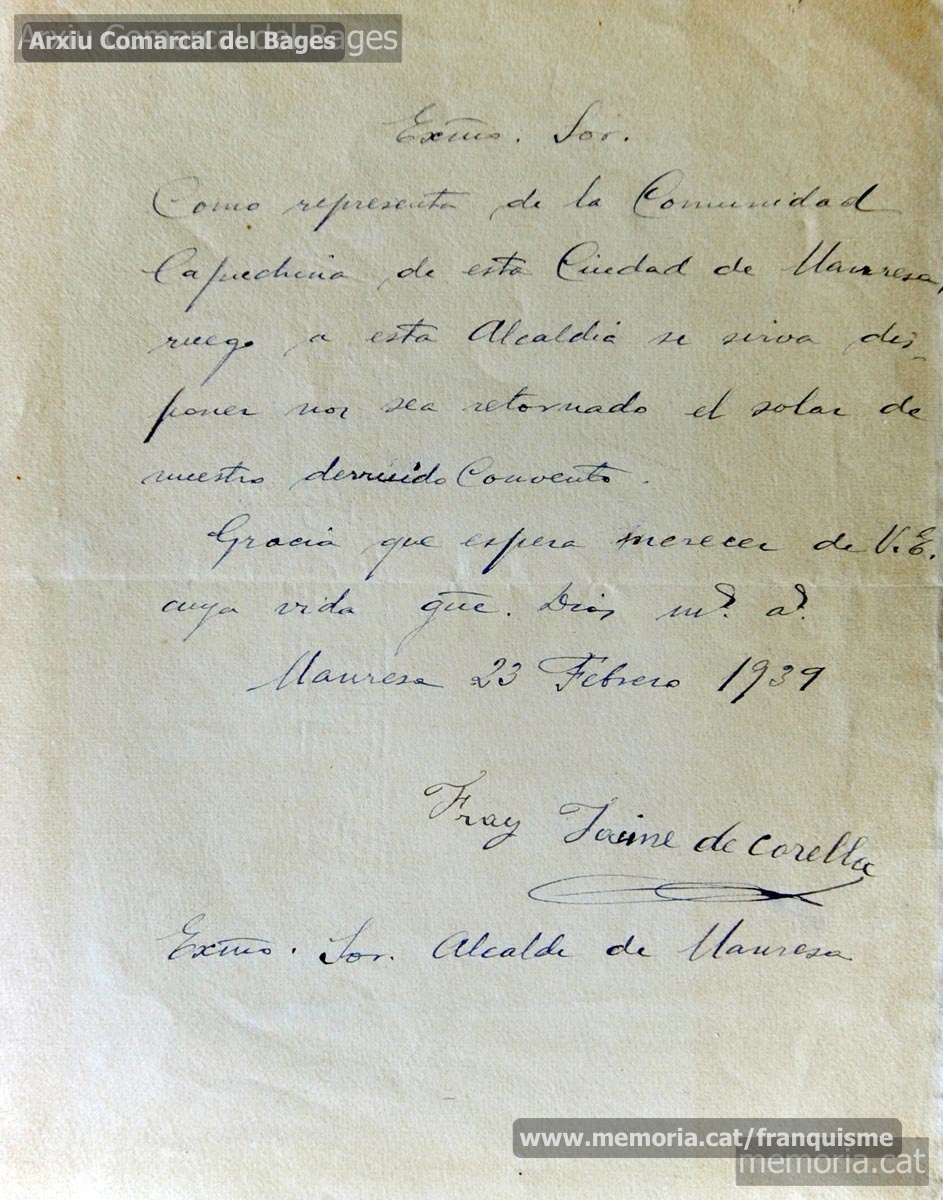 Arxiu Comarcal del Bages
Arxiu Comarcal del Bages
Exmo. Sor.
Como representa de la Comunidad
Capuchina de esta Ciudad de Manresa,
ruego a esta Alcaldiá se sirva dis-
poner nos sea retornado el solar de
nuestro derruido Convento.
Gracia que espera merecer de V.E.
cuya vida gûe. Dios ms. as.
Manresa 23 Febrero 1939
Fray Jaime de Corella
Exmo. Sor. Alcalde de Manresa
www.memoria.cat/franquisme
memoria.cat